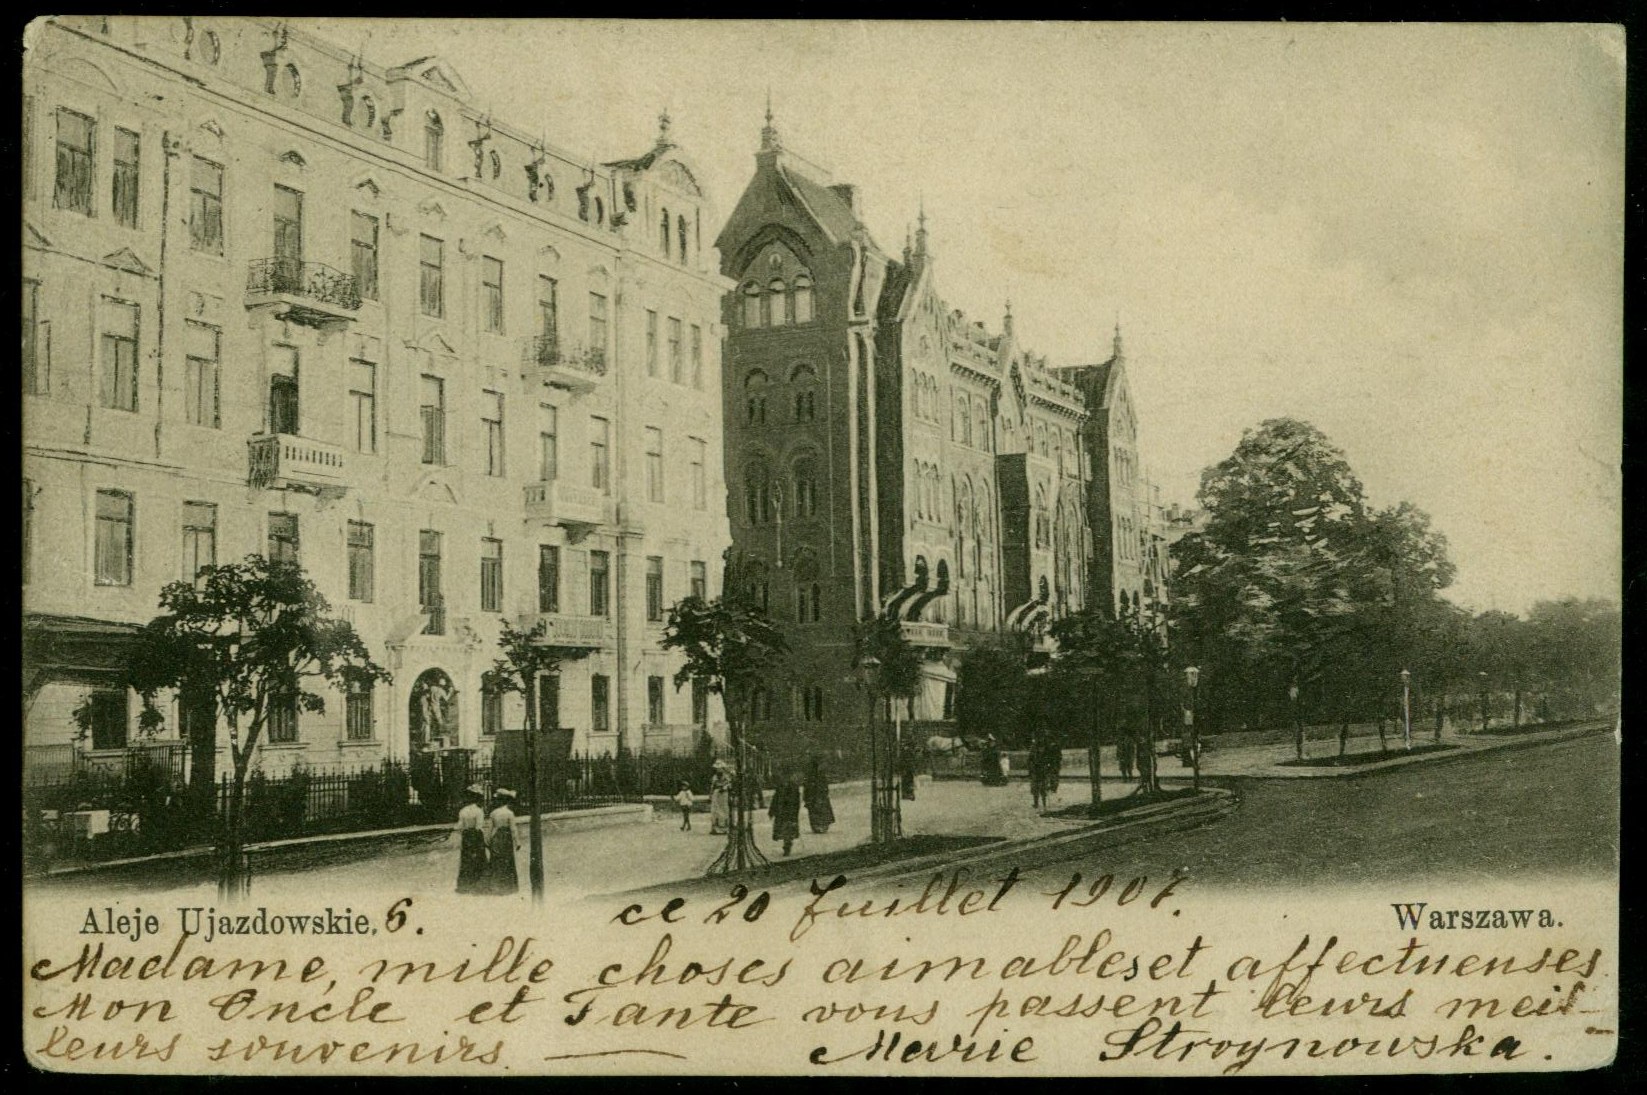 Aleje Ujazdowskie. 6.
ce 20 Juillet 1907.
Warszawa.
Madame, mille choses aimables et affectueuses.
Mon Oncle et Tante vous passent leurs meil-
leurs souvenirs. — Marie Stroynowska.